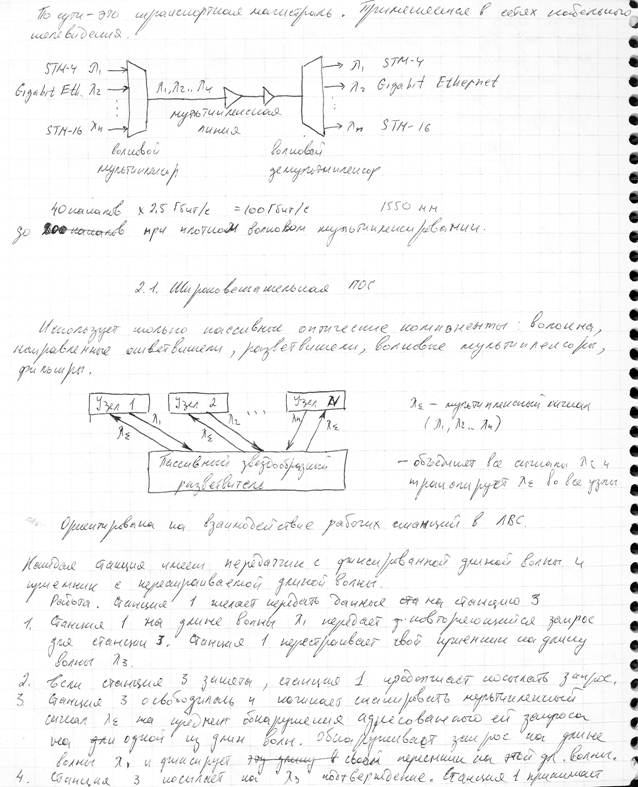 По сути - это транспортная магистраль. Применяется в сетях кабельного
телевидения.
STM-4 λ1
Gigabit Eth. λ2
STM-16 λn
λ1, λ2.. λn
мультиплексная
линия
λ1 STM-4
λ2 Gigabit Ethernet
λn STM-16
волновой
мультиплексор
волновой
демультиплексор
40 каналов x 2,5 Гбит/с = 100 Гбит/с 1550 нм
до 200 каналов при плотном волновом мультиплексировании.
2.1. Широковещательная ПОС
Использует только пассивные оптические компоненты: волокна,
направленные ответвители, разветвители, волновые мультиплексоры,
фильтры.
Узел 1 Узел 2 ... Узел N
λΣ λ1 λΣ λ2 λn λΣ
Пассивный звездообразный
разветвитель
λΣ - мультиплексный сигнал
(λ1, λ2.. λn)
- объединяет все сигналы λi и
транслирует λΣ во все узлы
Ориентирована на взаимодействие рабочих станций в ЛВС.
Каждая станция имеет передатчик с фиксированной длиной волны и
приемник с перестраиваемой длиной волны.
Работа. Станция 1 желает передать данные ста на станцию 3
1. Станция 1 на длине волны λ1 передает повторяющийся запрос
для станции 3. Станция 1 перестраивает свой приемник на длину
волны λ3.
2. Если станция 3 занята, станция 1 продолжает посылать запрос.
3. Станция 3 освободилась и начинает сканировать мультиплексный
сигнал λΣ на предмет обнаружения адресованного ей запроса
на дли одной из длин волн. Обнаруживает запрос на длине
волны λ1 и фиксирует эту длину в своём приемнике на этой дл. волны.
4. Станция 3 посылает на λ3 подтверждение. Станция 1 принимает